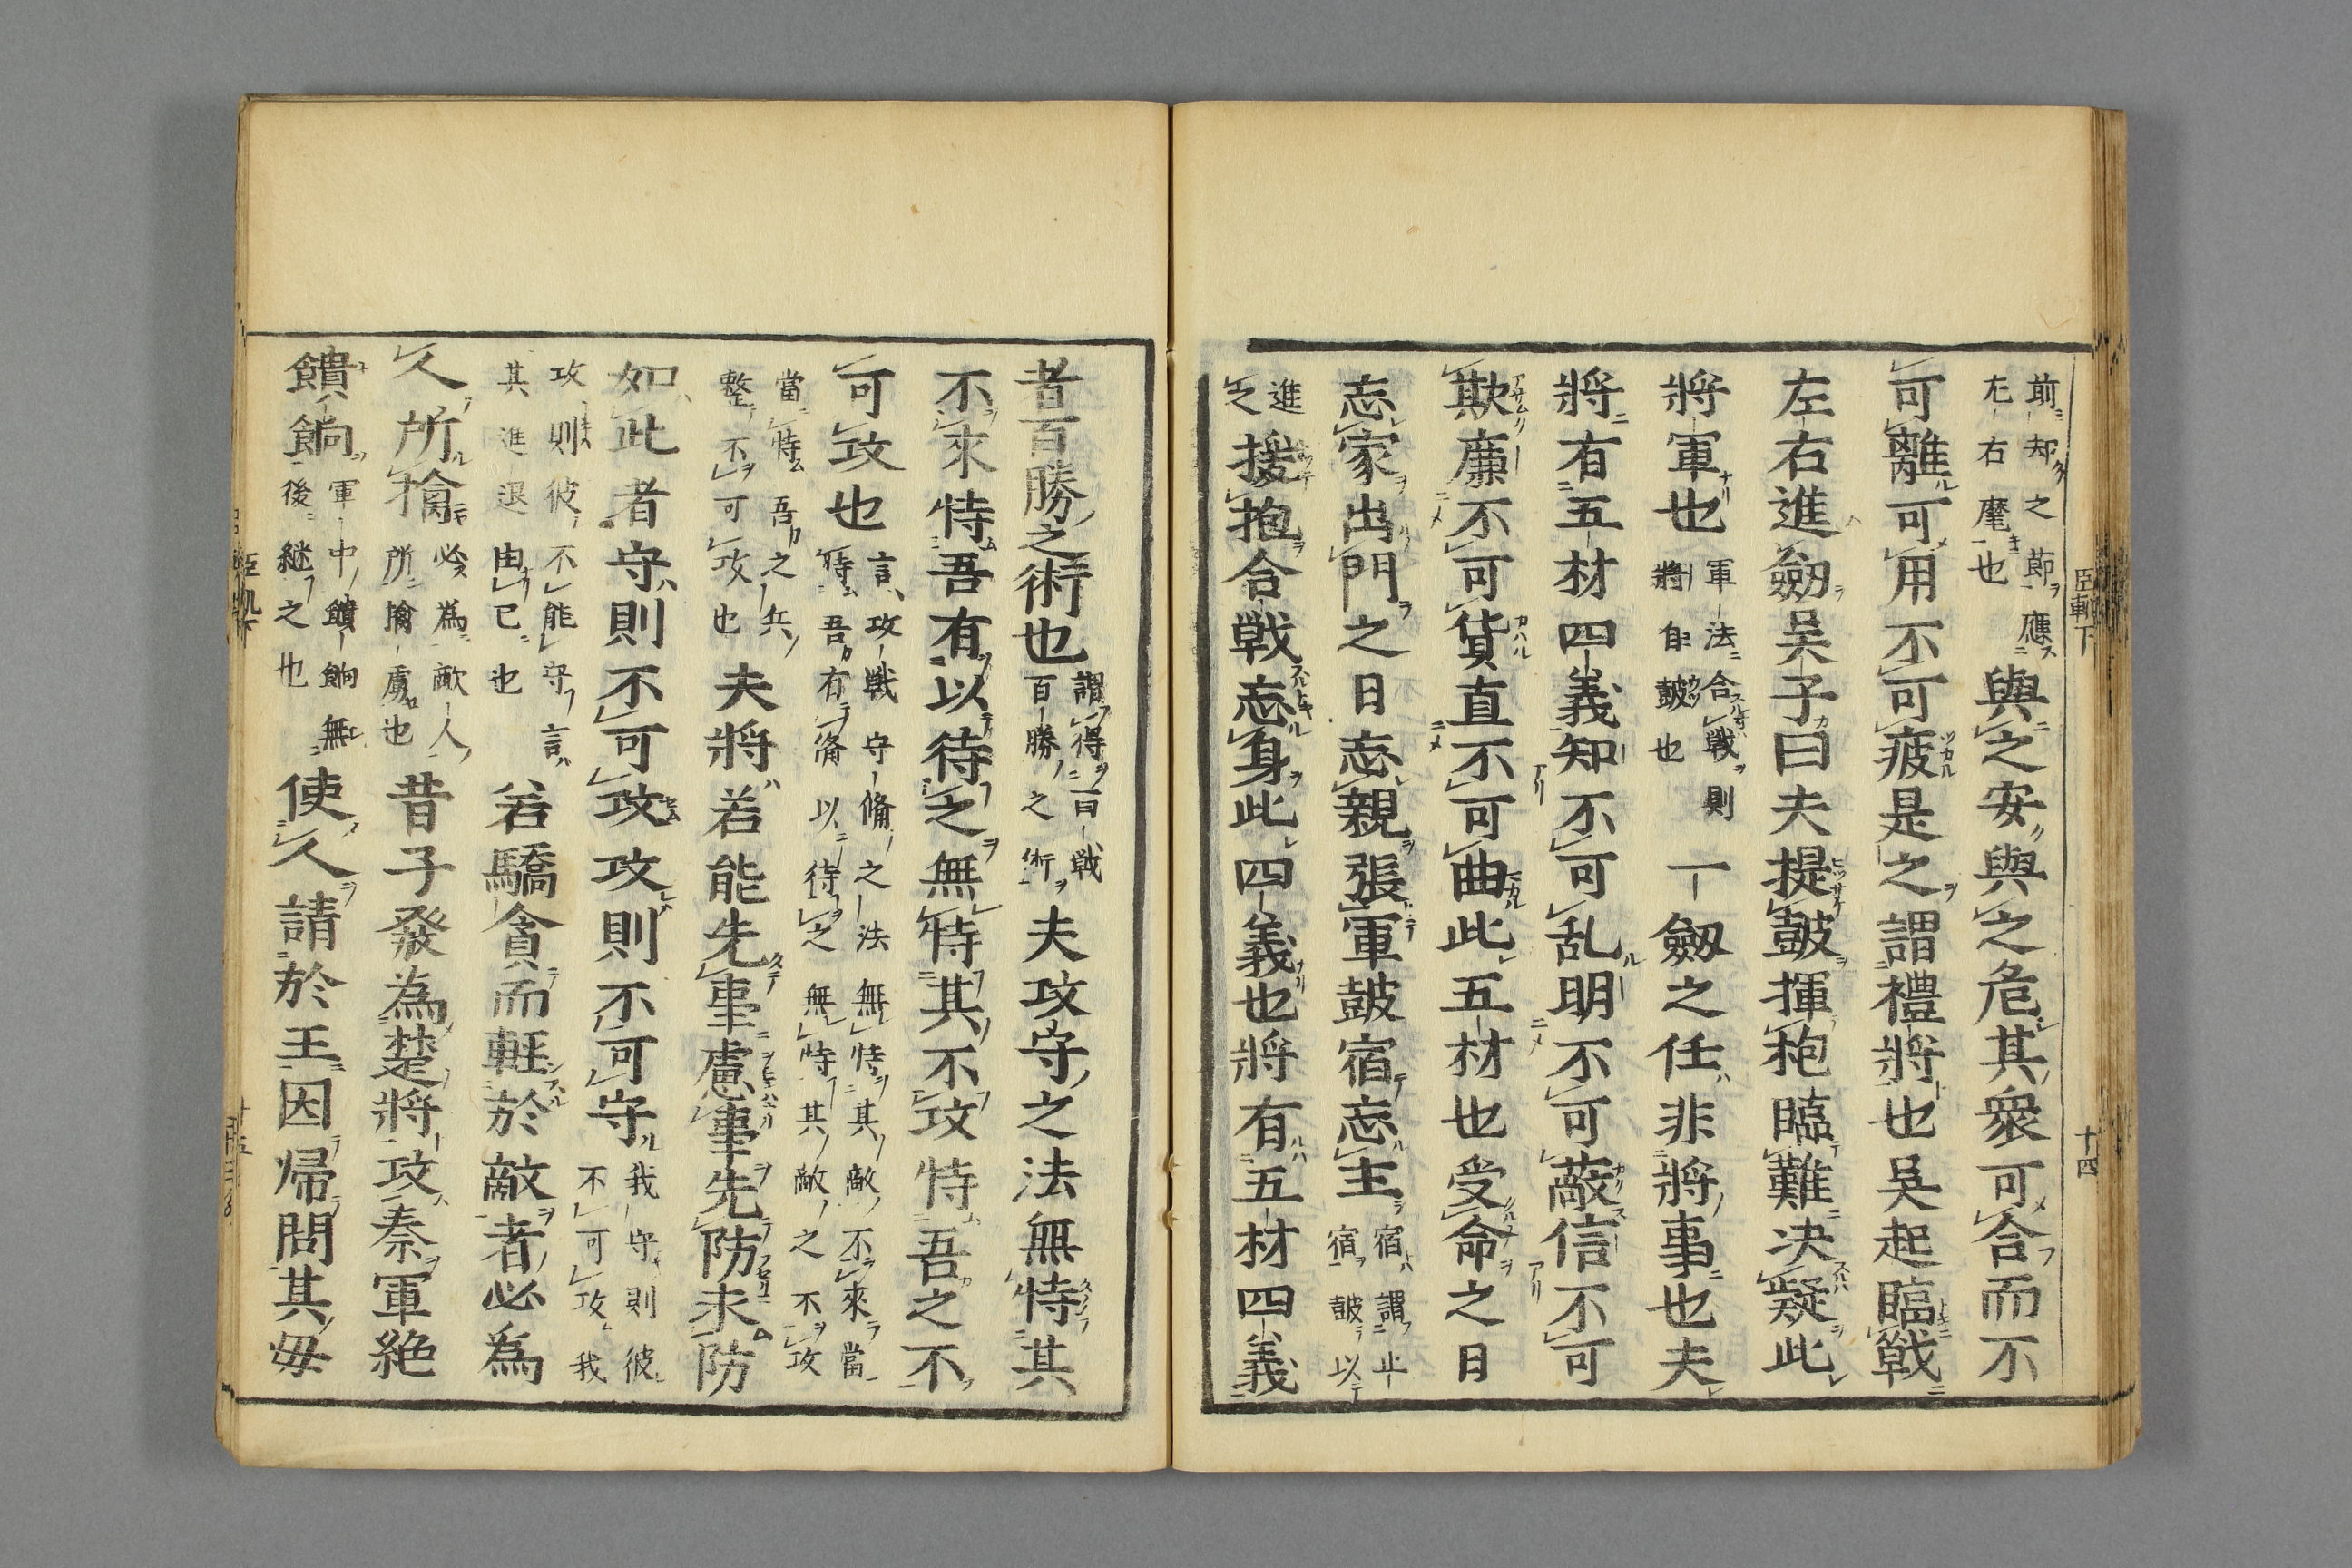 前却之節應
左右麾也
與之安與之危其衆可合而不
可離可用不可疲是之謂禮將也吳起臨戰
左右進劔吳子曰夫提鼓揮枹臨難决疑此
將軍也
軍法合戰則
將自鼓也
一劔之任非將事也夫
將有五材四義知不可乱明不可蔽信不可
欺廉不可貨直不可曲此五材也受命之日
忘家出門之日忘親張軍鼓宿忘主
宿謂止
宿鼓以
進
之
援抱合戰忘身此四義也將有五材四義
臣軌下
十四
者百勝之術也
謂得百戰
百勝之術
夫攻守之法無恃其
不來恃吾有以待之無恃其不攻恃吾之不
可攻也
言攻戰守備之法無恃其敵不來當
恃吾有備以待之無恃其敵之不攻
當恃吾之兵
整不可攻也
夫將若能先事慮事先防求防
如此者守則不可攻攻則不可守
我守則彼
不可攻我
攻則彼不能守言
其進退由已也
若驕貪而軽於敵者必為
人所擒
必為敵人
所擒虜也
昔子發為楚將攻秦軍絶
饋餉
軍中饋餉無
後継之也
使人請於王因帰問其母